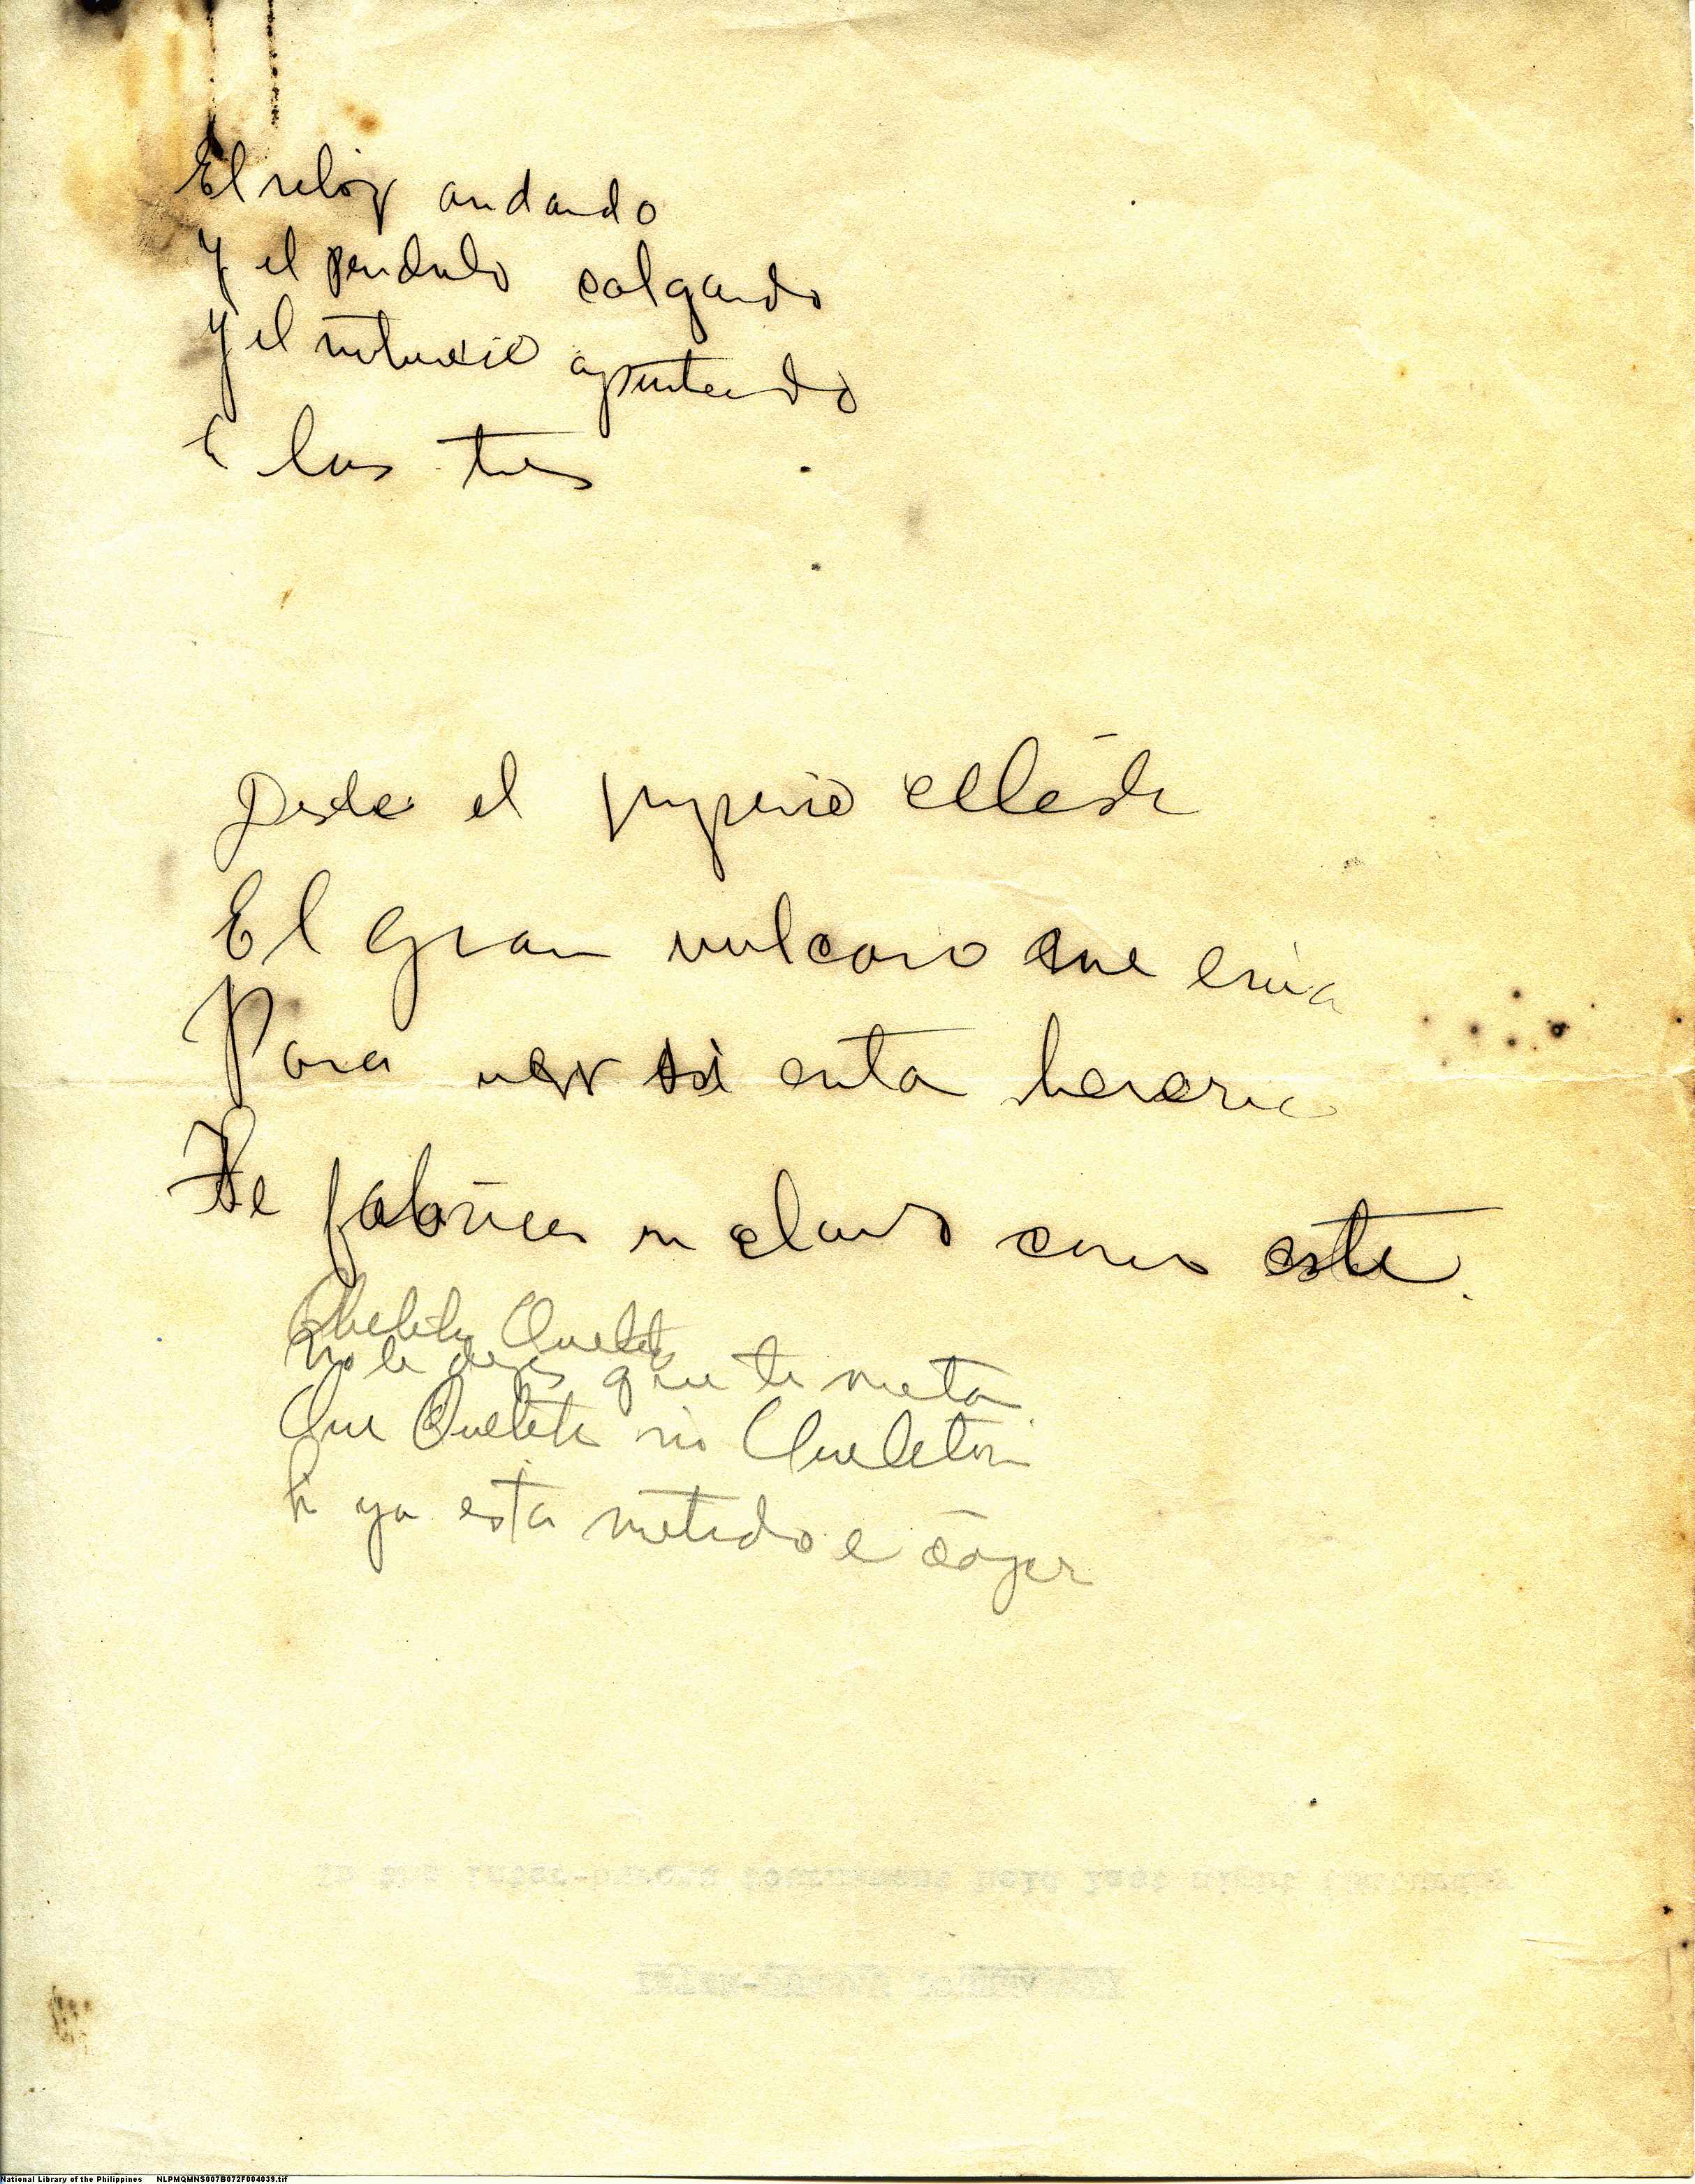 El reloj andando
Y el pendulo colgando
Y el apuntando
a las tres
Desde el celeste
El gran vulcano me envia
Para ver si esta
Se fabrica un clavo como este.
Quelete
No le dejes que te meta
Que Quelete ni Queleton
Si ya esta metido e coger
National Library of the Philippines NLPMQMNS007B072F004039.tif